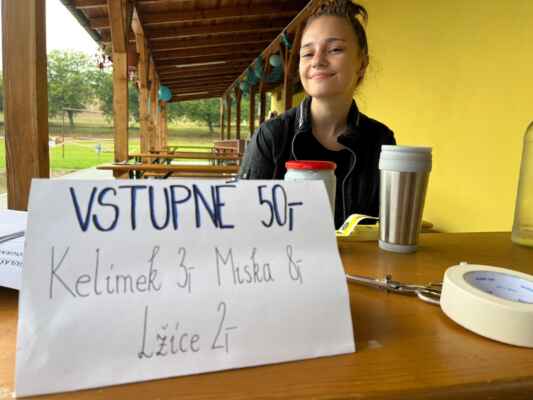 VSTUPNÉ 50,-
Kelímek 3,- Miska 8,-
Lžíce 2,-